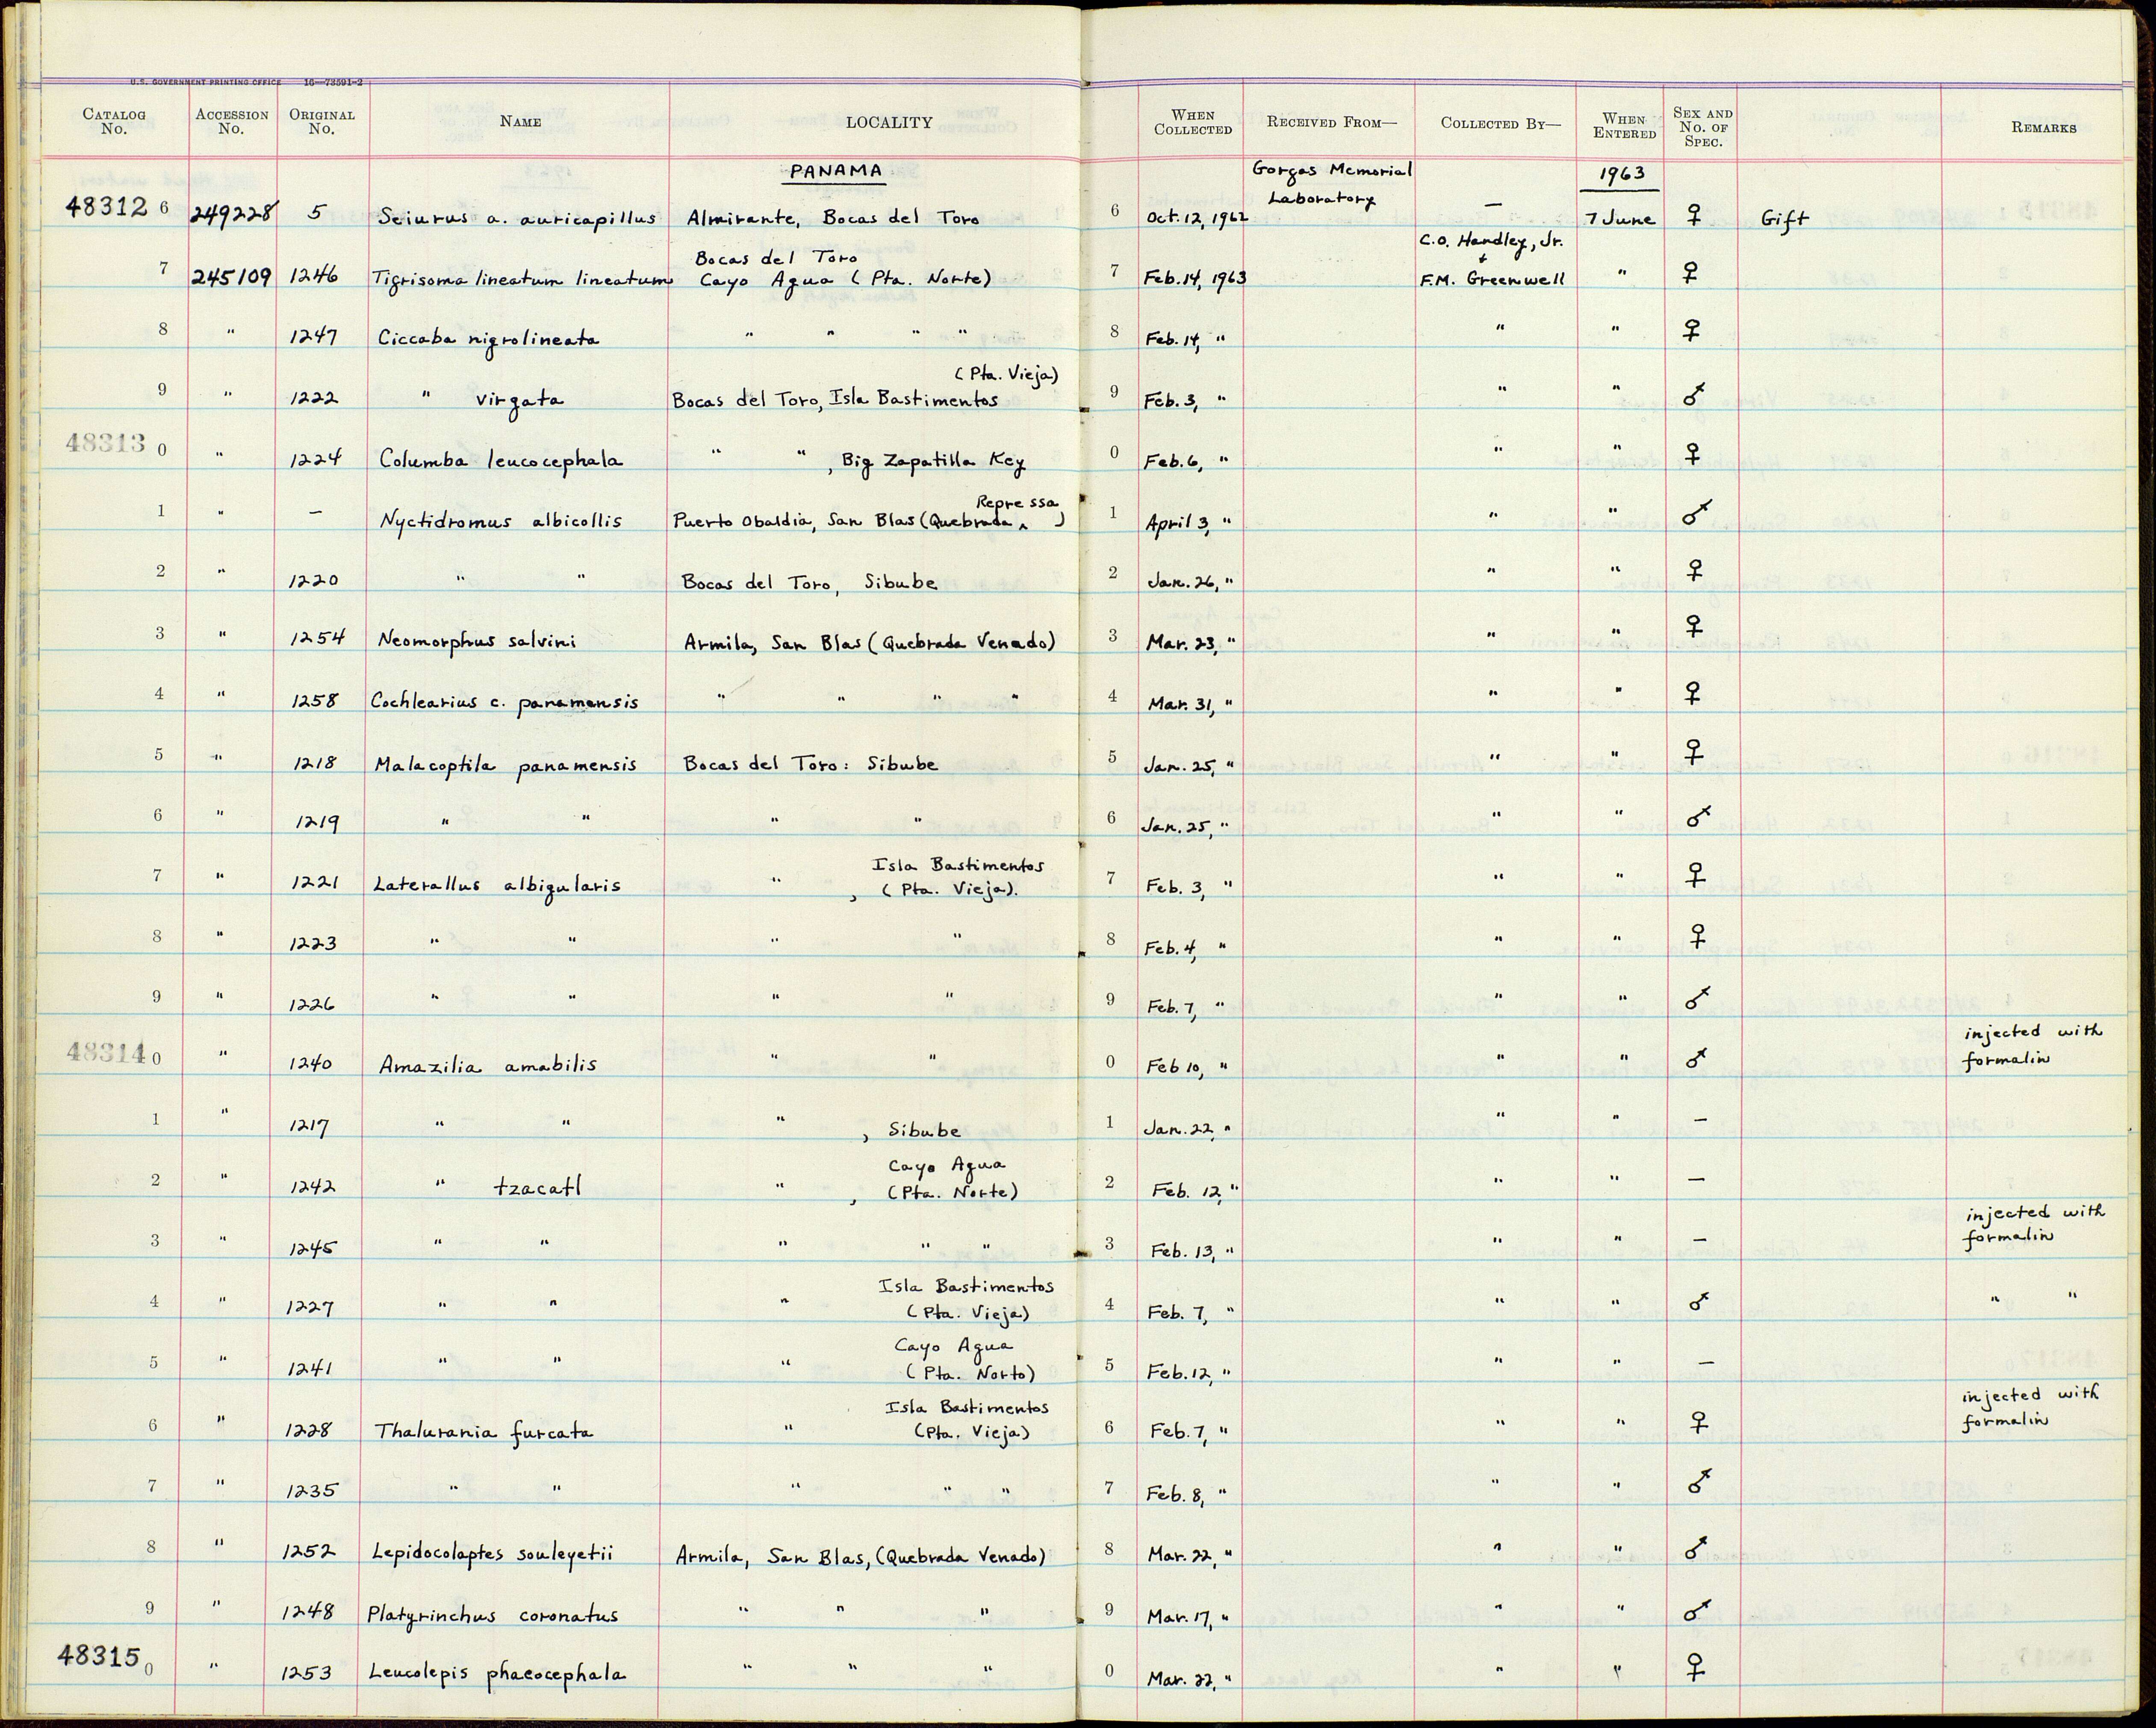 U.S. GOVERNMENT PRINTING OFFICE 16—73591-2
CATALOG No. ACCESSION No. ORIGINAL No. NAME LOCALITY WHEN COLLECTED RECEIVED FROM— COLLECTED BY— WHEN ENTERED SEX AND No. OF SPEC. REMARKS
PANAMA Gorgas Memorial Laboratory 1963
48312 6 249228 5 Seiurus a. auricapillus Almirante, Bocas del Toro 6 Oct. 12, 1962 — 7 June ♀ Gift
7 245109 1246 Tigrisoma lineatum lineatum Bocas del Toro Cayo Agua (Pta. Norte) 7 Feb. 14, 1963 C.O. Handley, Jr. + F.M. Greenwell " ♀
8 " 1247 Ciccaba nigrolineata " " " " 8 Feb. 14, " " " ♀
9 " 1222 " virgata Bocas del Toro, Isla Bastimentos (Pta. Vieja) 9 Feb. 3, " " " ♂
48313 0 " 1224 Columba leucocephala " ", Big Zapatilla Key 0 Feb. 6, " " " ♀
1 " — Nyctidromus albicollis Puerto Obaldia, San Blas (Quebrada ^ Repressa) 1 April 3, " " " ♂
2 " 1220 " " Bocas del Toro, Sibube 2 Jan. 26, " " " ♀
3 " 1254 Neomorphus salvini Armila, San Blas (Quebrada Venado) 3 Mar. 23, " " " ♀
4 " 1258 Cochlearius c. panamensis " " " " 4 Mar. 31, " " " ♀
5 " 1218 Malacoptila panamensis Bocas del Toro: Sibube 5 Jan. 25, " " " ♀
6 " 1219 " " " " 6 Jan. 25, " " " ♂
7 " 1221 Laterallus albigularis ", Isla Bastimentos (Pta. Vieja). 7 Feb. 3, " " " ♀
8 " 1223 " " " " 8 Feb. 4, " " " ♀
9 " 1226 " " " " 9 Feb. 7, " " " ♂
48314 0 " 1240 Amazilia amabilis " " 0 Feb 10, " " " ♂ injected with formalin
1 " 1217 " " ", Sibube 1 Jan. 22, " " " —
2 " 1242 " tzacatl ", Cayo Agua (Pta. Norte) 2 Feb. 12, " " " —
3 " 1245 " " " " " 3 Feb. 13, " " " — injected with formalin
4 " 1227 " " " Isla Bastimentos (Pta. Vieja) 4 Feb. 7, " " " ♂ " "
5 " 1241 " " " Cayo Agua (Pta. Norto) 5 Feb. 12, " " " —
6 " 1228 Thalurania furcata " Isla Bastimentos (Pta. Vieja) 6 Feb. 7, " " " ♀ injected with formalin
7 " 1235 " " " " " 7 Feb. 8, " " " ♂
8 " 1252 Lepidocolaptes souleyetii Armila, San Blas, (Quebrada Venado) 8 Mar. 22, " " " ♂
9 " 1248 Platyrinchus coronatus " " " 9 Mar. 17, " " " ♂
48315 0 " 1253 Leucolepis phaeocephala " " " 0 Mar. 22, " " " ♀